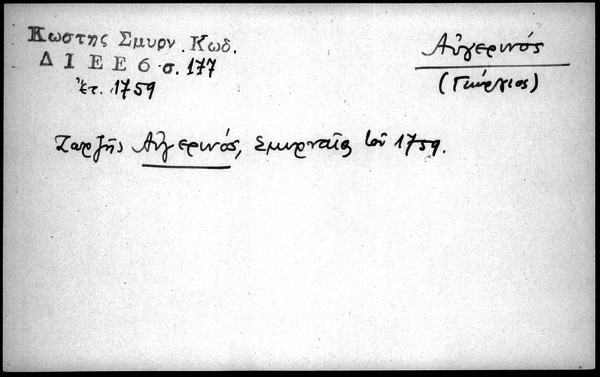 Κωστης Σμυρν. Κωδ.
Δ Ι Ε Ε 6 σ. 177
Ἔτ. 1759
Αὐγερινός
(Γεώργιος)
Ζωρζῆς Αὐγερινός, Σμυρναῖος τοῦ 1759.